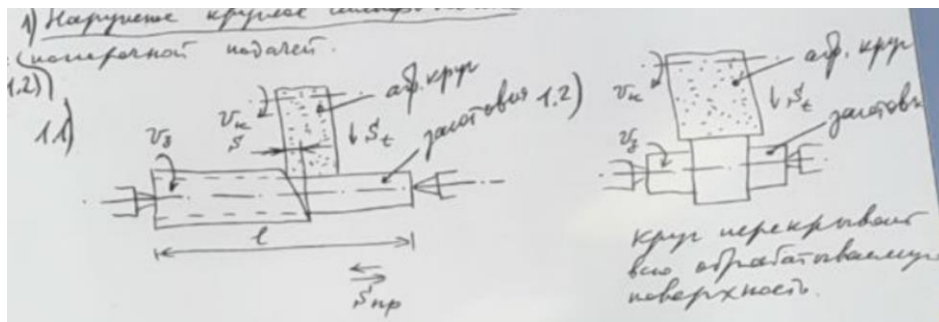 1) Наружное круглое
поперечной подачей.
1.2))
1.1)
vз
vк
S
абр. круг
↓ St
заготовка
l
Sпр
1.2)
vк
абр. круг
↓ St
vз
круг перекрывает
всю обрабатываемую
поверхность.